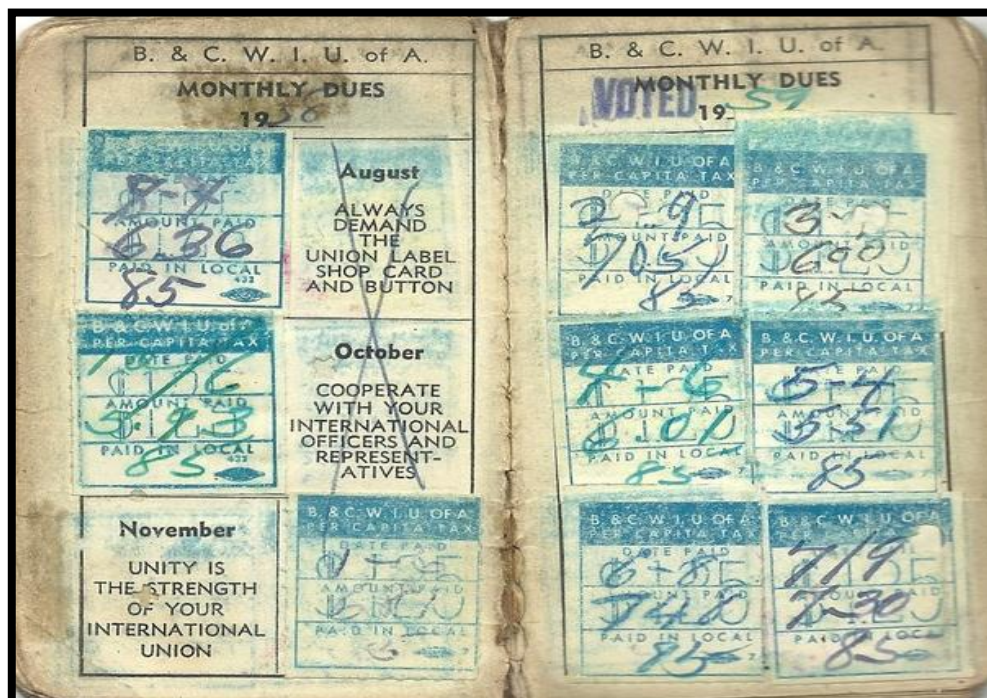 B. & C. W. I. U. of A.
MONTHLY DUES
19
B. & C.W.I.U. of A
PER CAPITA TAX
8-4
AMOUNT PAID
6.36
PAID IN LOCAL
85
432
August
ALWAYS
DEMAND
THE
UNION LABEL
SHOP CARD
AND BUTTON
B. & C.W.I.U. of A
PER CAPITA TAX
DATE PAID
AMOUNT PAID
PAID IN LOCAL
85
432
October
COOPERATE
WITH YOUR
INTERNATIONAL
OFFICERS AND
REPRESENT-
ATIVES
November
UNITY IS
THE STRENGTH
OF YOUR
INTERNATIONAL
UNION
B. & C.W.I.U. OF A
PER CAPITA TAX
DATE PAID
AMOUNT PAID
PAID IN LOCAL
B. & C. W. I. U. of A.
MONTHLY DUES
VOTED 1959
B. & C.W.I.U. OF A
PER CAPITA TAX
DATE PAID
AMOUNT PAID
PAID IN LOCAL
85
7
B. & C.W.I.U. OF A
PER CAPITA TAX
DATE PAID
AMOUNT PAID
PAID IN LOCAL
85
7
B. & C.W.I.U. OF A
PER CAPITA TAX
DATE PAID
4-6
AMOUNT PAID
PAID IN LOCAL
85
7
B. & C.W.I.U. OF A
PER CAPITA TAX
DATE PAID
5-4
AMOUNT PAID
5.51
PAID IN LOCAL
85
B. & C.W.I.U. OF A
PER CAPITA TAX
DATE PAID
6-8
AMOUNT PAID
PAID IN LOCAL
85
7
B. & C.W.I.U. OF A
PER CAPITA TAX
7/9
AMOUNT PAID
7.30
PAID IN LOCAL
85